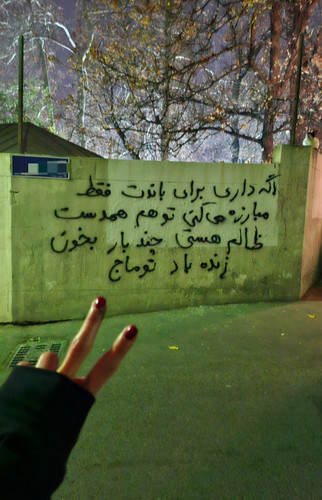 اگه داری برای باندت فقط
مبارزه می‌کنی تو هم همدست
ظالم هستی چند بار بخون
زنده باد توماج